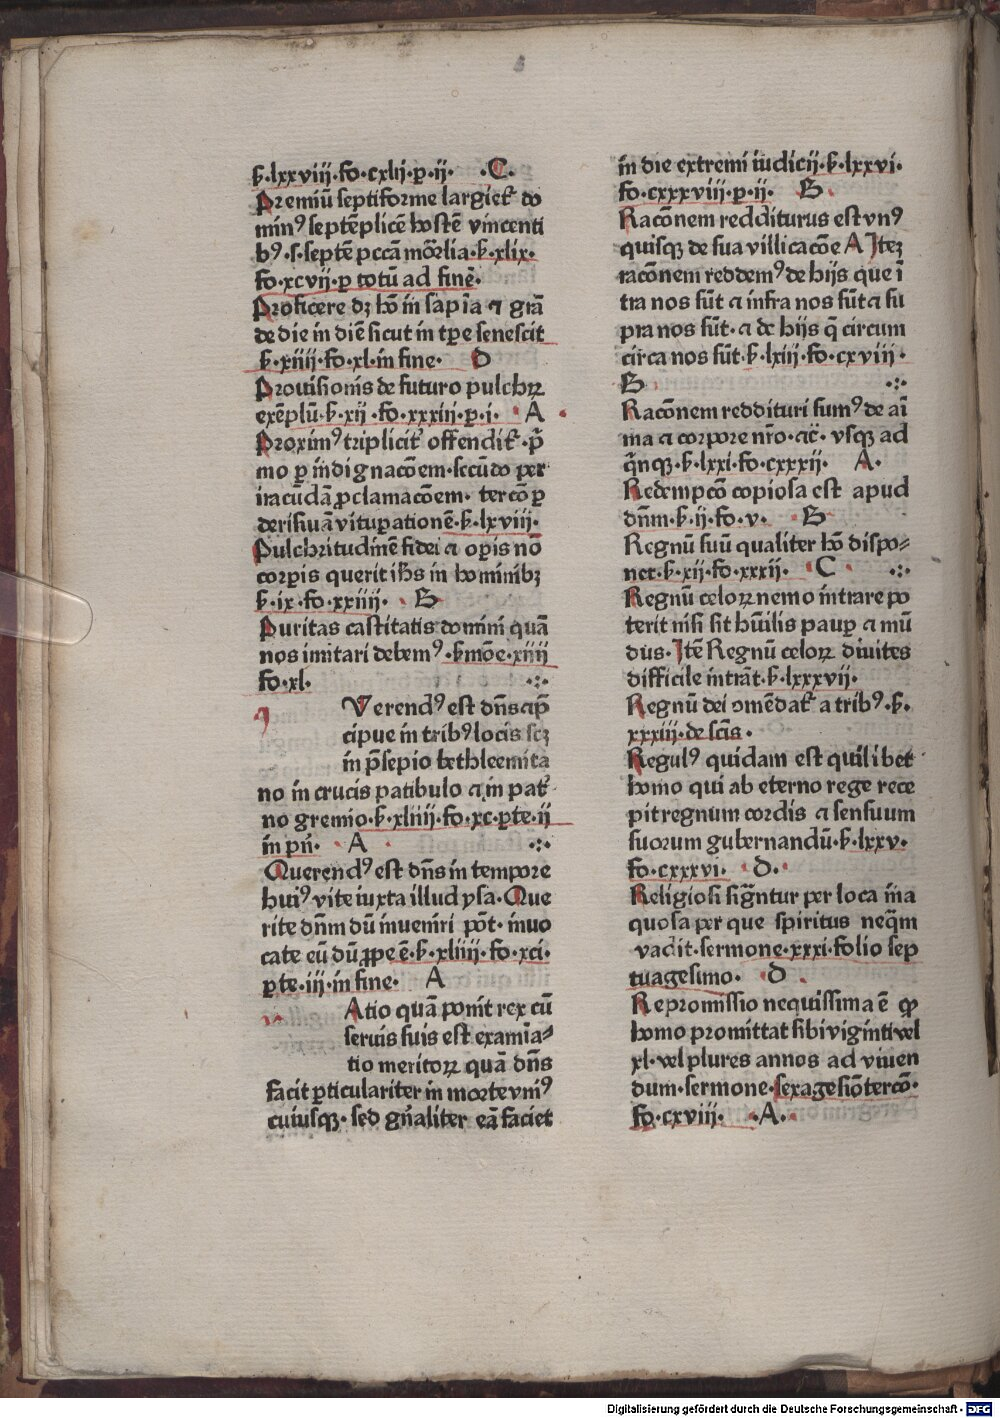 ẜ·lxxviij·fo·cxlij·ꝑ·ij· ·C·
Premiū septiforme largiet᷑ do
minꝰ septēplicē hostē vincenti
bꝰ·s·septē pccā mōrlia·ẜ·xlix·
fo·xcvij·ꝑ totū ad finē·
Proficere dꝫ hō in sapīa ⁊ grā
de die in diē sicut in tꝑe senescit
ẜ·xiiij·fo·xl·in fine· D
Prouisionis de futuro pulchꝝ
exēplū·ẜ·xij·fo·xxxiij·ꝑ·i· A
Proximꝰ triplicit᷑ offendit᷑·p̄
mo ꝑ indignacōem·secūdo per
iracūdā ꝓclamacōem· tercō ꝑ
derisiuā vituꝑationē·ẜ·lxviij·
Pulchritudinē fidei ⁊ oꝑis nō
corꝑis querit ihs̄ in hominibꝫ
ẜ·ix·fo·xxiiij· B
Puritas castitatis domini quā
nos imitari debemꝰ·ẜmōe·xiiij
fo·xl· ·:·
Verendꝰ est dn̄s ⁊ p̄
cipue in tribꝰ locis scꝫ
in p̄sepio bethleemita
no in crucis patibulo ⁊ in pat᷑
no gremio·ẜ·xliiij·fo·xc·ꝑte·ij
in pn̄· A ·:·
Querendꝰ est dn̄s in tempore
huiꝰ vite iuxta illud ysa·Que
rite dn̄m dū inueniri pōt·inuo
cate eū dū ꝓpe ē·ẜ·xliiij·fo·xci·
ꝑte·iij·in fine· A
Atio quā ponit rex cū
seruis suis est examīa⸗
tio meritoꝝ quā dn̄s
facit ꝑticulariter in morte vniꝰ
cuiusqꝫ·sed gn̄aliter eā faciet
in die extremi iudicij·ẜ·lxxvi·
fo·cxxxviij·ꝑ·ij· B
Racōnem redditurus est vnꝰ
quisqꝫ de sua villicacōe A Iteꝫ
racōnem reddemꝰ de hijs que ī
tra nos sūt ⁊ infra nos sūt ⁊ su
pra nos sūt·⁊ de hijs q̄ circum
circa nos sūt·ẜ·lxiij·fo·cxviij·
B ·:·
Racōnem reddituri sumꝰ de aī
ma ⁊ corpore nr̄o·⁊c̄·vsqꝫ ad
q̄nqꝫ·ẜ·lxxi·fo·cxxxij· A·
Redempcō copiosa est apud
dn̄m·ẜ·ij·fo·v· B
Regnū suū qualiter hō dispo⸗
net·ẜ·xij·fo·xxxij· C ·:·
Regnū celoꝝ nemo intrare po
terit nisi sit hūilis paupꝑ ⁊ mū
dus·Itē Regnū celoꝝ diuites
difficile intrāt·ẜ·lxxxvij·
Regnū dei ꝯmēdat᷑ a tribꝰ·ẜ·
xxxiij·de scīs·
Regulꝰ quidam est quilibet
homo qui ab eterno rege rece
pit regnum cordis ⁊ sensuum
suorum gubernandū·ẜ·lxxv·
fo·cxxxvi· ·D·
Religiosi sign̄tur per loca īna
quosa per que spiritus neq̄m
vadit·sermone·xxxi·folio sep
tuagesimo· ·D
Repromissio nequissima ē ꝙ
homo promittat sibi viginti vel
xl·vel plures annos ad viuen
dum·sermone·sexagesiō tercō·
fo·cxviij· ·A·
Digitalisierung gefördert durch die Deutsche Forschungsgemeinschaft - DFG